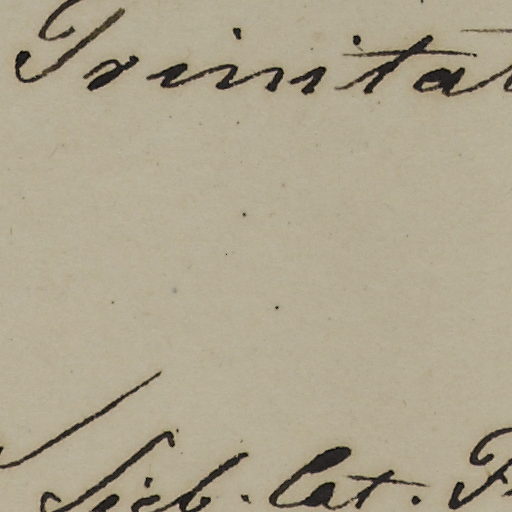 Trinitat
Sieb. lat. F